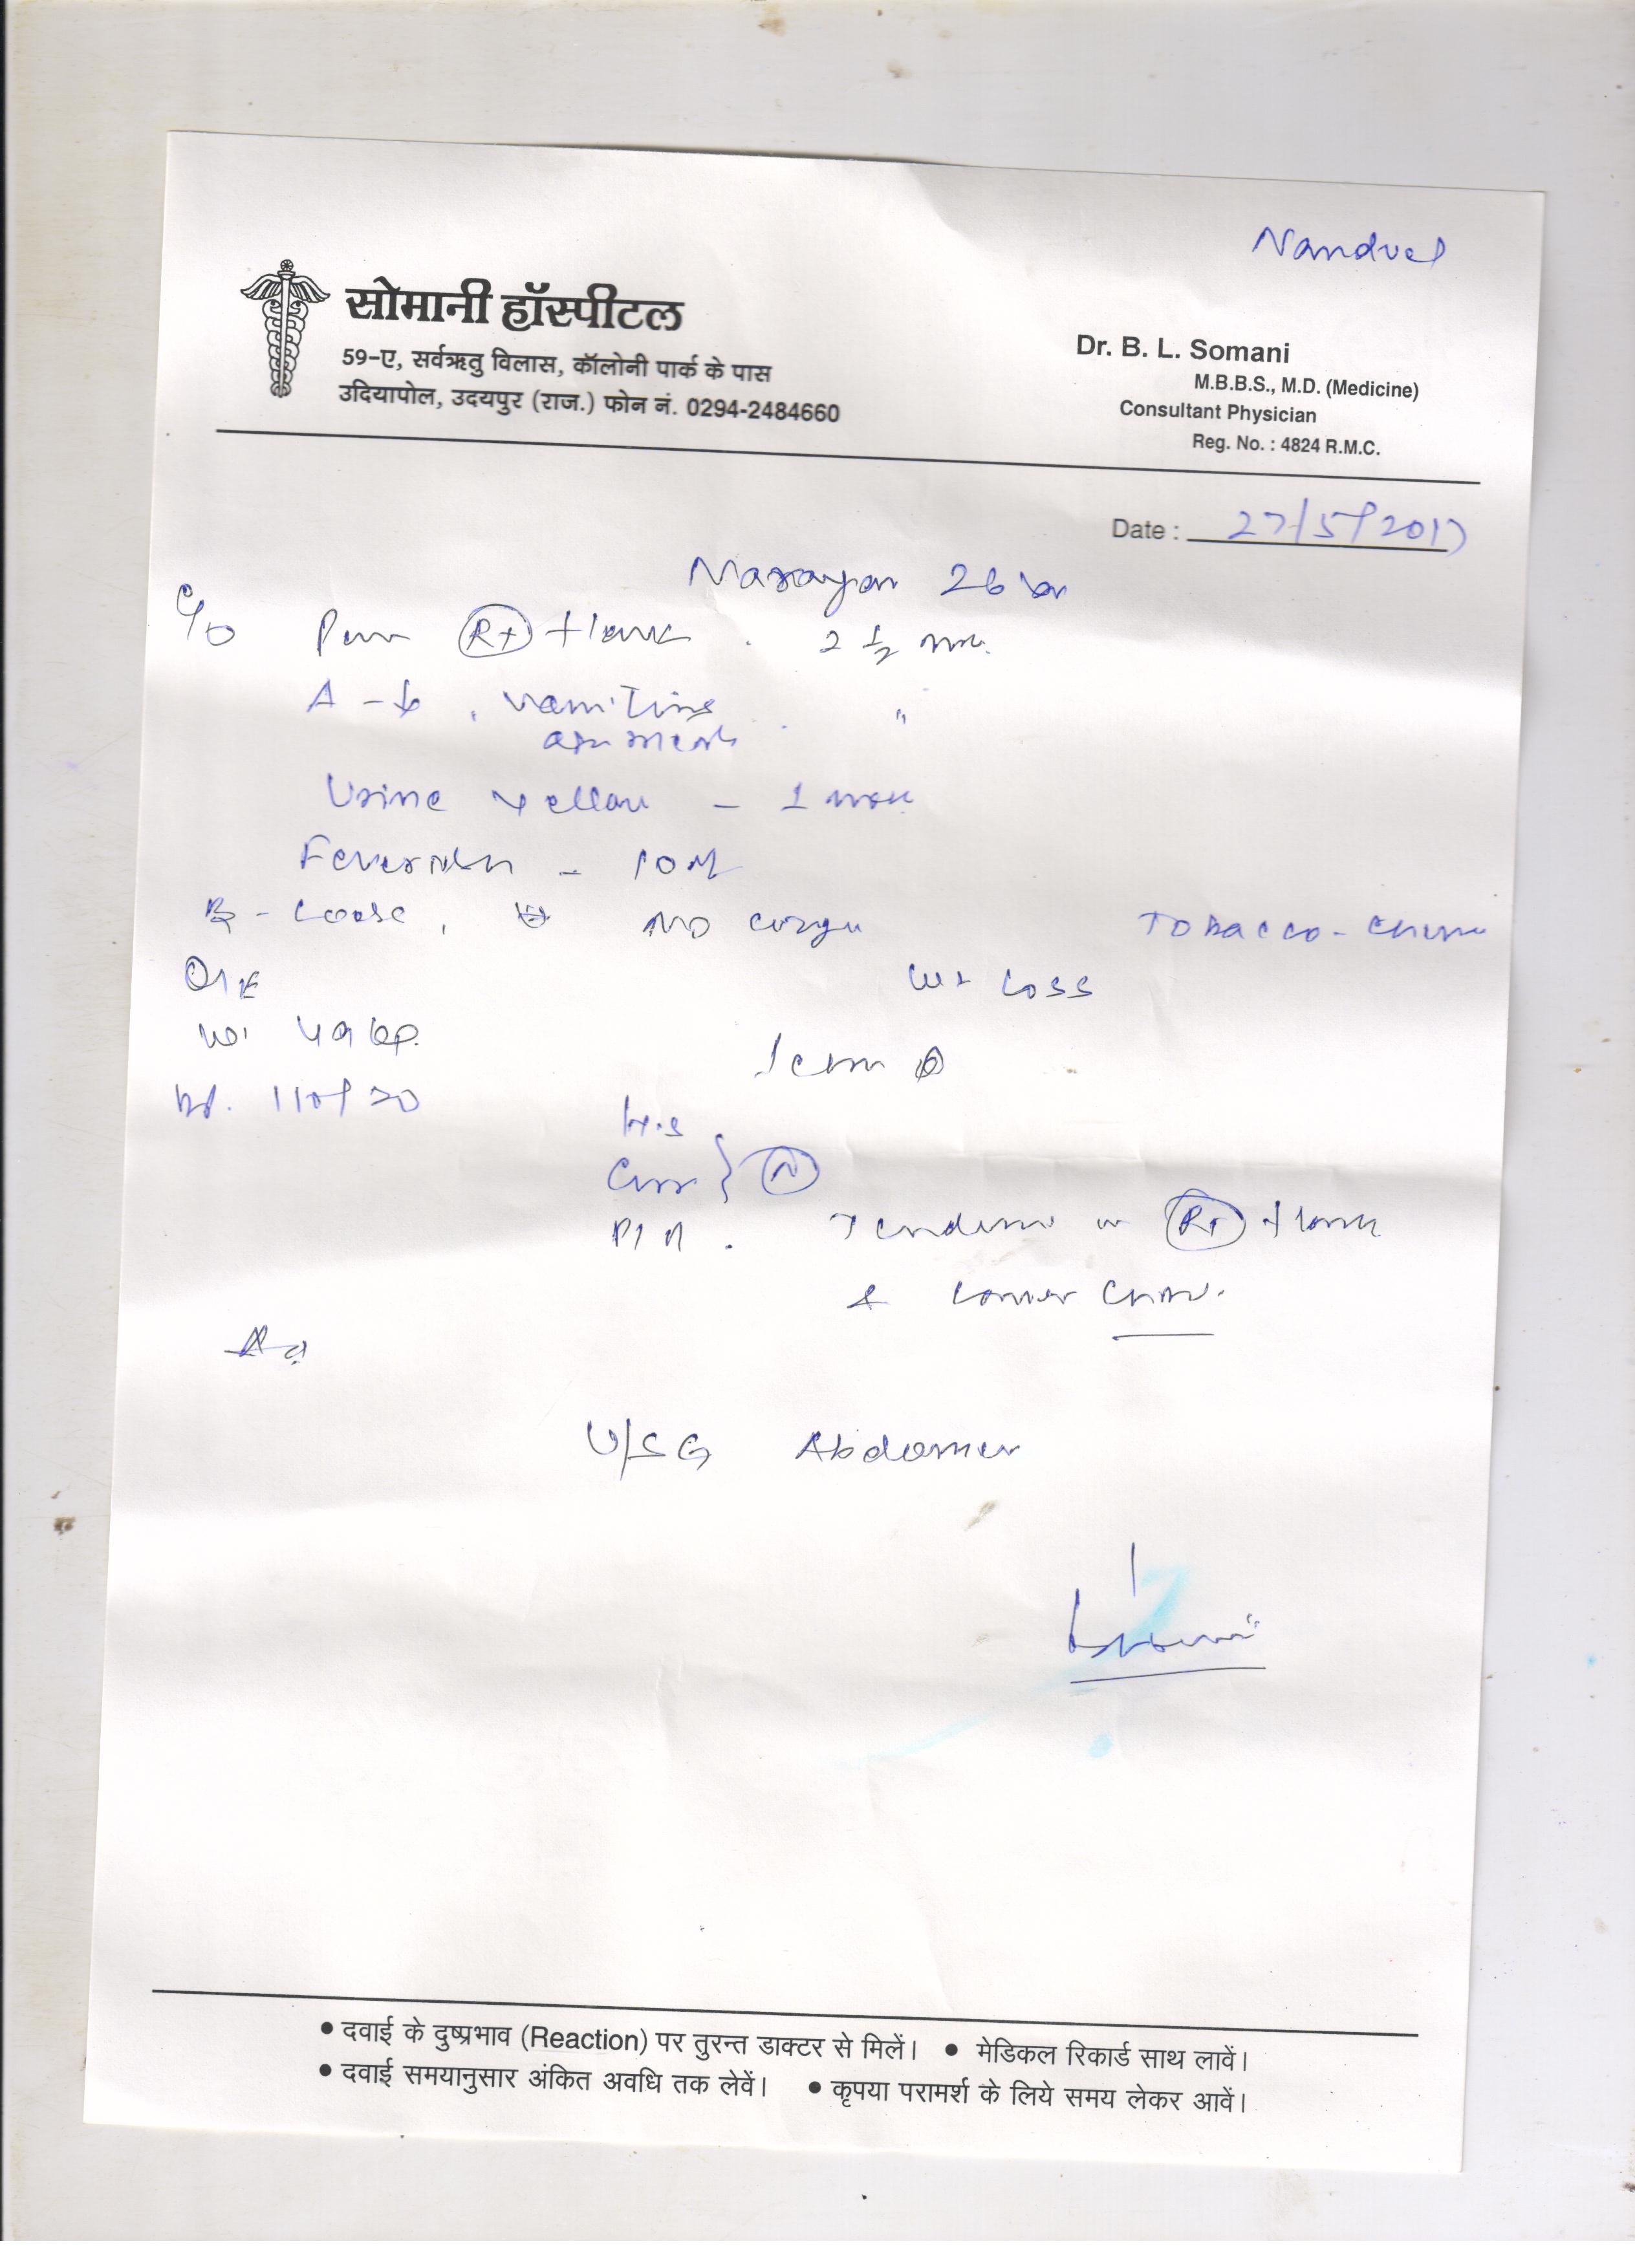 Nandvel
सोमानी हॉस्पीटल
59-ए, सर्वऋतु विलास, कॉलोनी पार्क के पास
उदियापोल, उदयपुर (राज.) फोन नं. 0294-2484660
Dr. B. L. Somani
M.B.B.S., M.D. (Medicine)
Consultant Physician
Reg. No. : 4824 R.M.C.
Date : 27/5/2017
Narayan 26
C/o Pain Rt flank . 2 1/2
A - , vomiting "
Urine yellow - 1
Feverish -
B - Loose, No Tobacco -
O/E Wt Loss
Wt 49 kg.
BP. 110/70
H.S
N
P/A . Tenderness in Rt flank
& Lower
U/SG Abdomen
• दवाई के दुष्प्रभाव (Reaction) पर तुरन्त डाक्टर से मिलें। • मेडिकल रिकार्ड साथ लावें।
• दवाई समयानुसार अंकित अवधि तक लेवें। • कृपया परामर्श के लिये समय लेकर आवें।